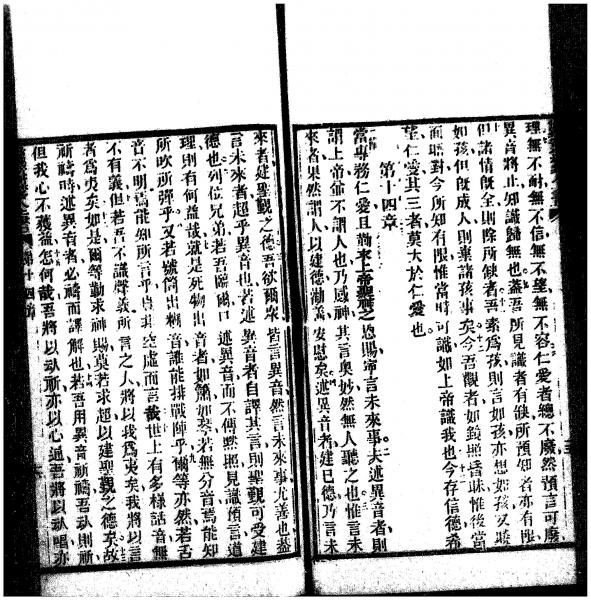 理無不耐無不信無不望無不容仁愛者總不廢然預言可廢
異音將止知識歸無也蓋吾所見識者有缺所預知者亦有限
但諸情既全則除所缺者吾素為孩則言如孩亦想如孩又聽
如孩但既成人則棄諸孩事矣今吾觀者如鏡照昏昧惟後當
面晤對今所知有限惟當時可識如上帝識我也今存信德希
望仁愛其三者莫大於仁愛也
第十四章
常專務仁愛且勤求上帝聖靈之恩賜帝言未來事夫述異音者則
謂上帝並不謂人也乃感神其言奧妙然無人聽之也惟言未
來者果然謂人以建德勸義安慰矣述異音者建己德乃言未
來者建聖觀之德吾欲爾眾皆言異音然言未來事尤善也蓋
言未來者超乎異音也若述異音者自譯其言則聖觀可受建
德也列位兄弟若吾臨爾口述異音而不傳默照見識預言道
理則有何益哉就是死物出音者如簫如琴若無分音焉能知
所吹所彈乎又若號筒出糊音誰能排戰陣乎爾等亦然若舌
音不明焉能知所言乎豈其空虛而言哉世上有多樣話音無
不有議但若吾不識聲義所言之人將以我為夷矣我將以言
者為夷矣如是爾等勤求神賜莫若求超以建聖觀之德矣故
祈禱時述異音者必禱而譯解也若吾用異音祈禱吾則祈
但我心不獲益怎何哉吾將以祈亦以心通吾將以唱亦